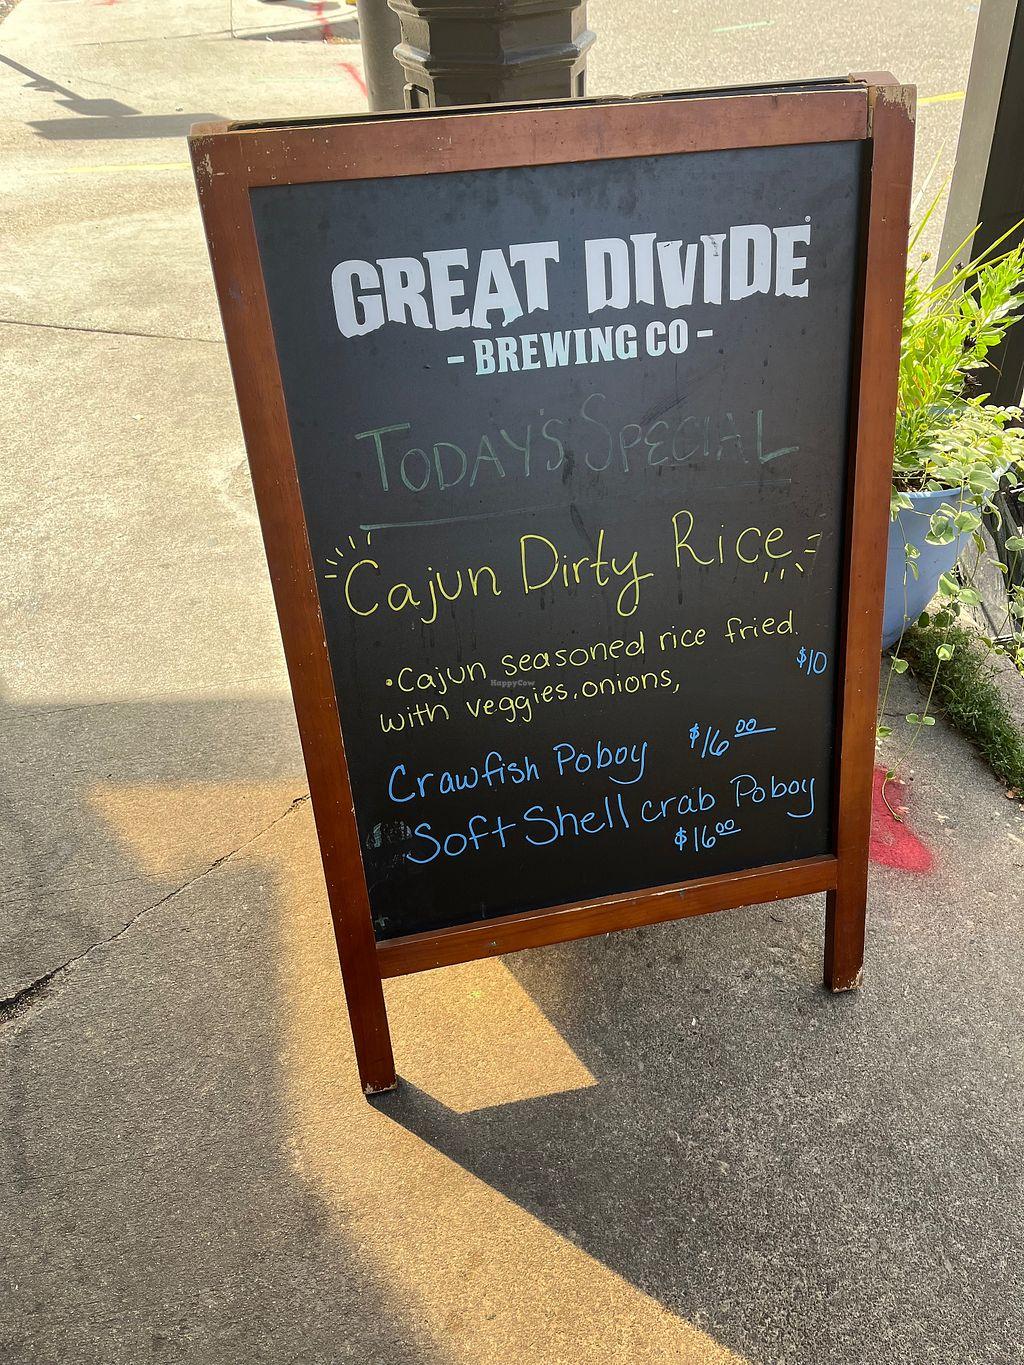 GREAT DIVIDE®
- BREWING CO -
TODAY'S SPECIAL
Cajun Dirty Rice
•Cajun seasoned rice fried.
with veggies.onions,
$10
HappyCow
Crawfish Poboy $16 00
Soft Shell crab Poboy
$16 00